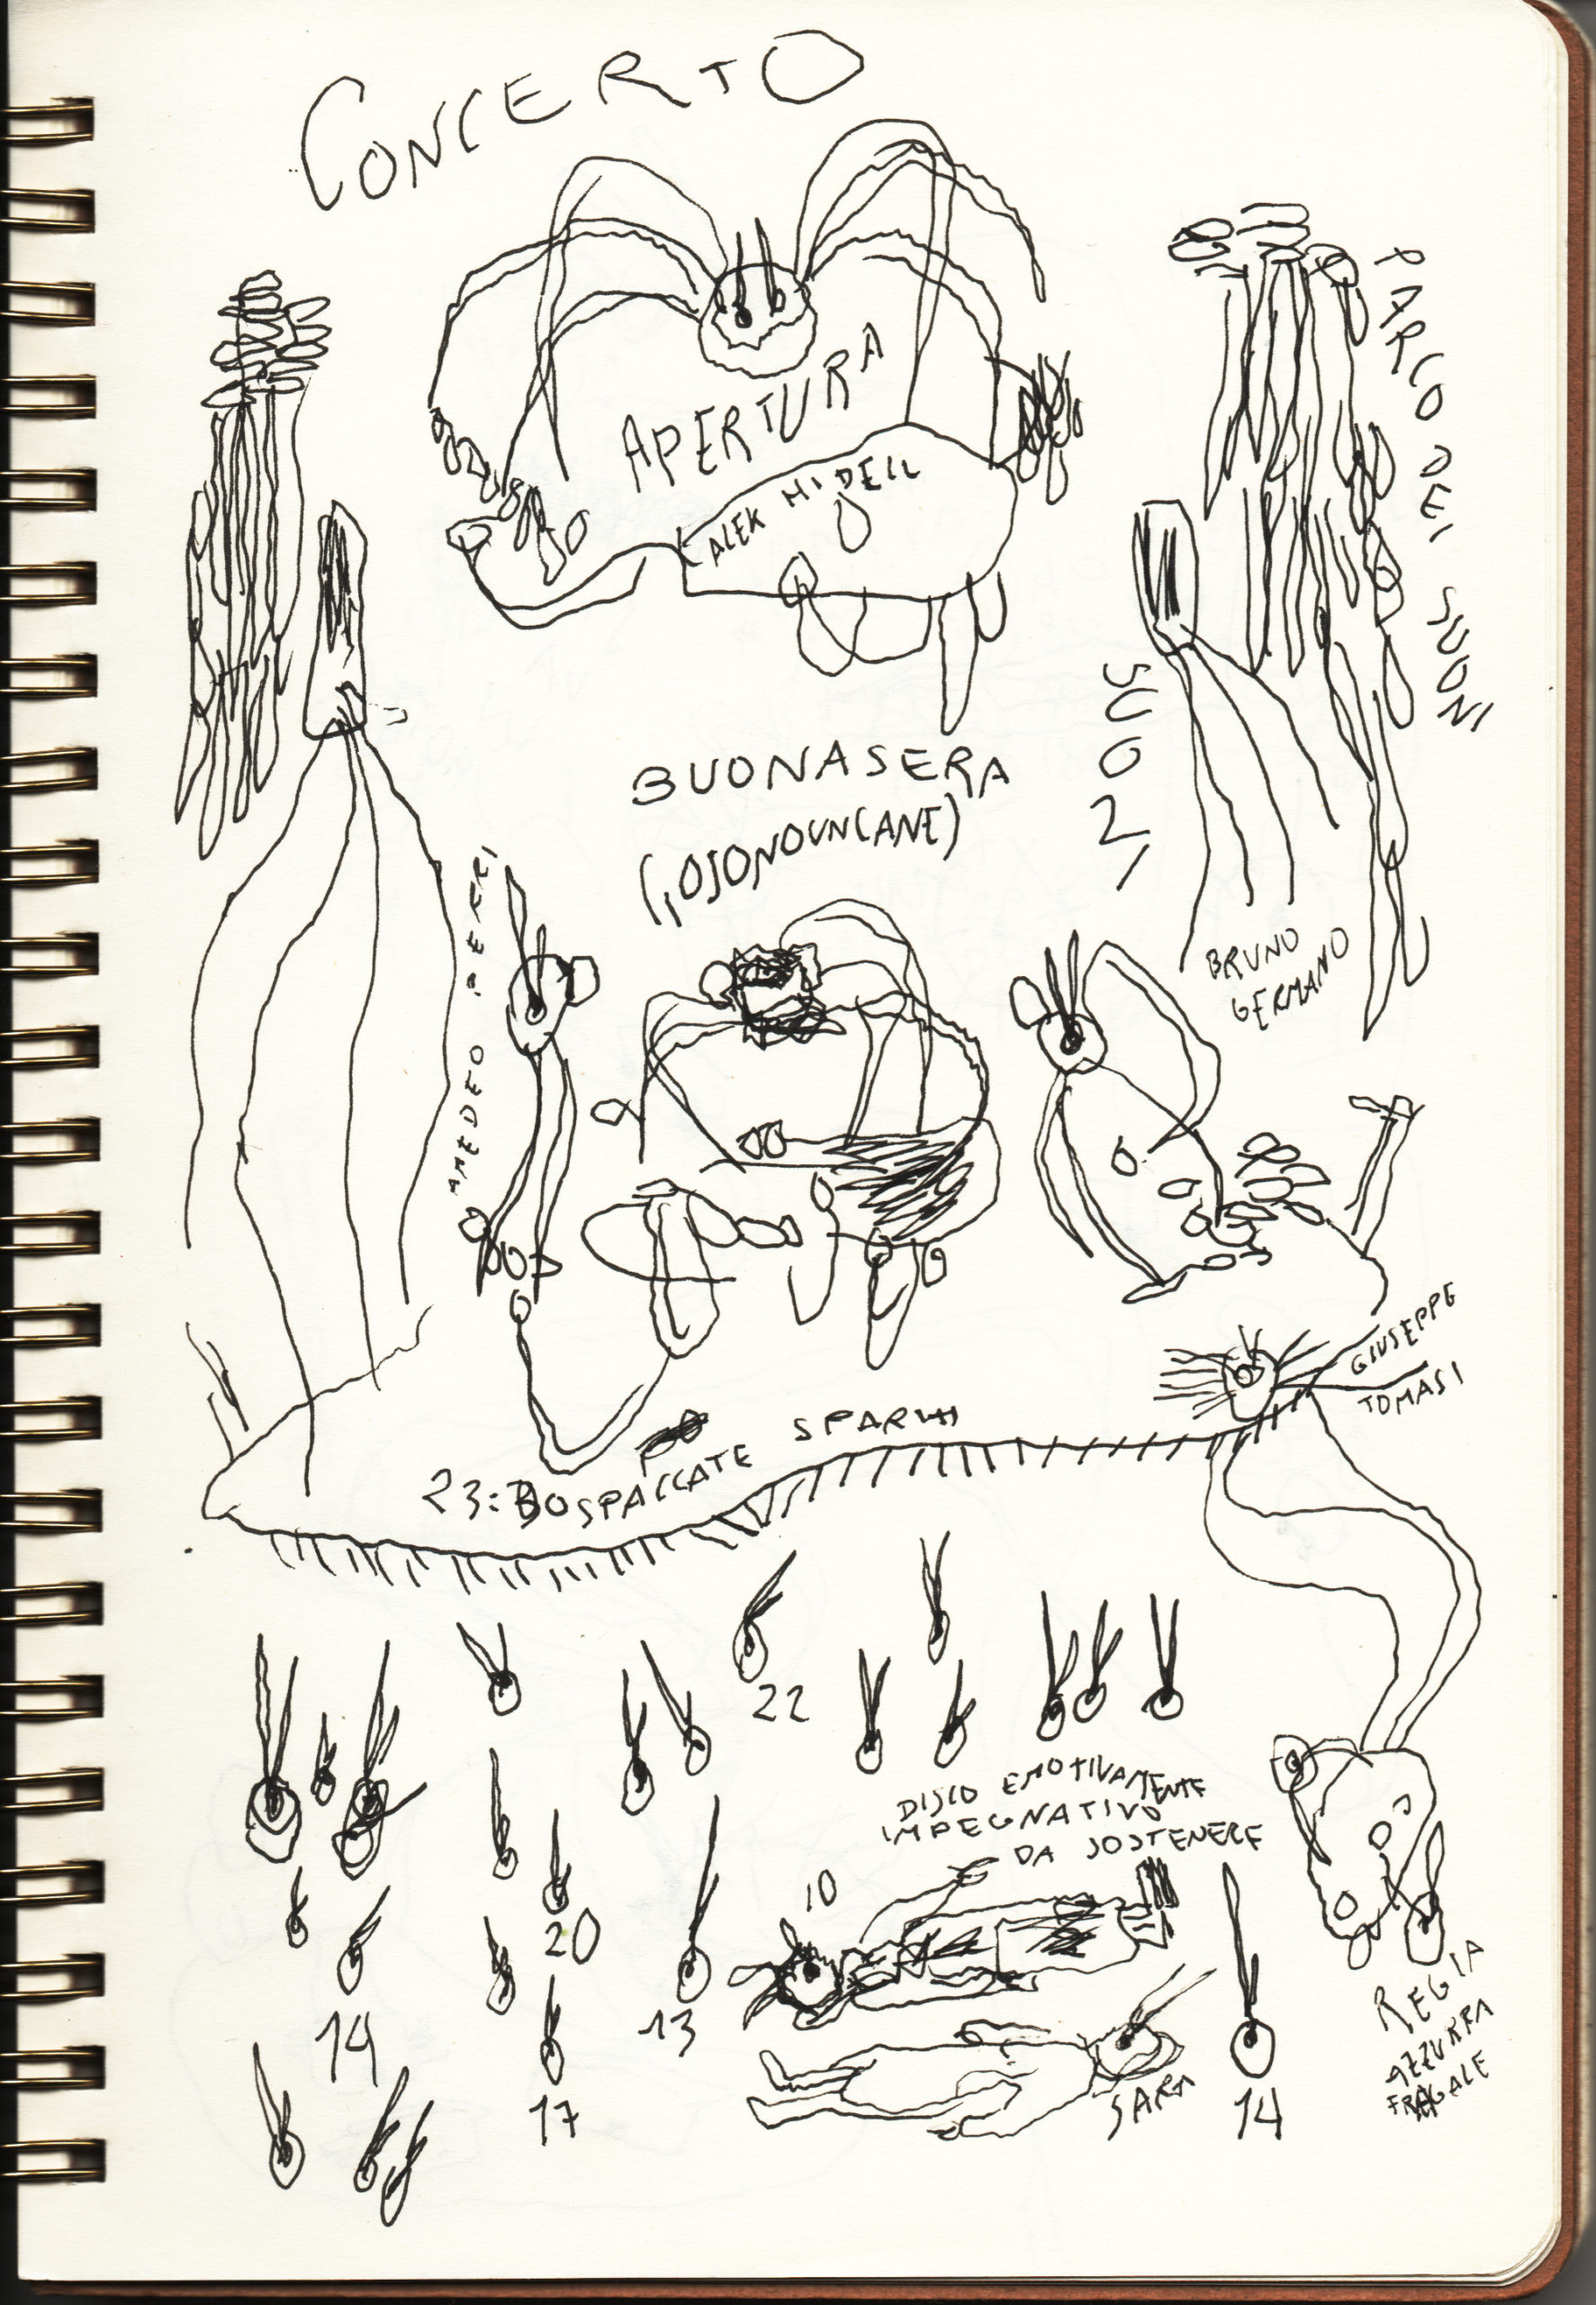 CONCERTO
APERTURA
ALEK HIDELL
PARCO DEI SUONI
BUONASERA
(IOSONOUNCANE)
AMEDEO PERRI
BRUNO
GERMANO
GIUSEPPE
TOMASI
23:BOSPACCATE
22
DISCO EMOTIVAMENTE
IMPEGNATIVO
DA SOSTENERE
10
20
14
13
17
SARA
14
REGIA
AZZURRA
FRAGALE